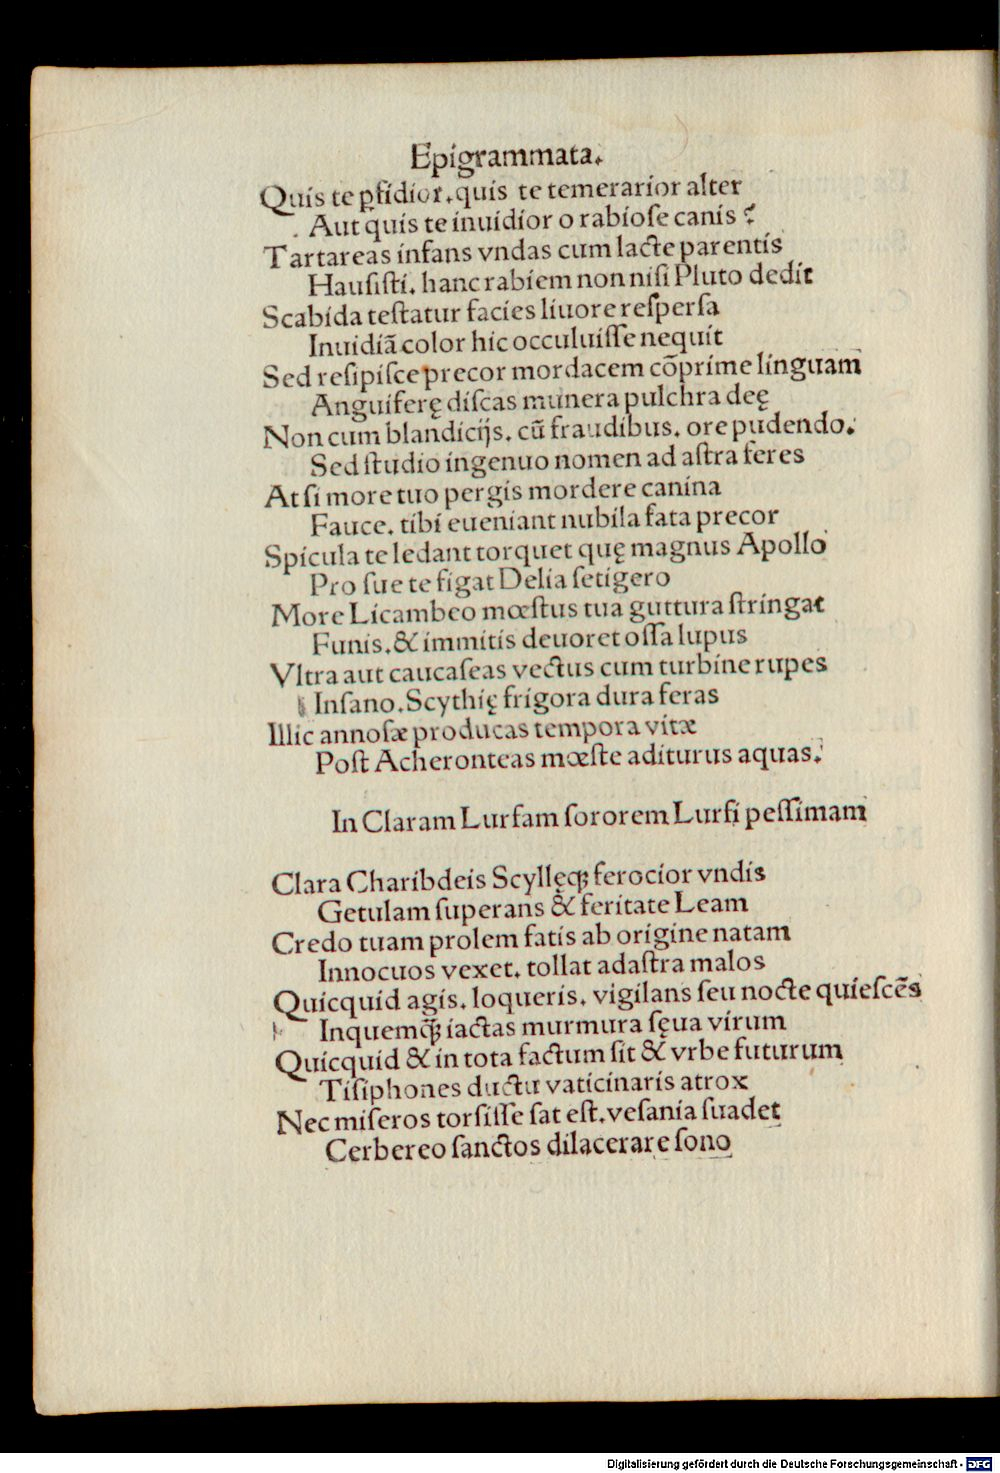 Epigrammata.
Quis te ꝑfidior. quis te temerarior alter
Aut quis te inuidior o rabiose canis?
Tartareas infans vndas cum lacte parentis
Hausisti. hanc rabiem non nisi Pluto dedit
Scabida testatur facies liuore respersa
Inuidiā color hic occuluisse nequit
Sed resipisce precor mordacem cōprime linguam
Anguiferę discas munera pulchra deę
Non cum blandicijs. cū fraudibus. ore pudendo.
Sed studio ingenuo nomen ad astra feres
At si more tuo pergis mordere canina
Fauce. tibi eueniant nubila fata precor
Spicula te ledant torquet quę magnus Apollo
Pro sue te figat Delia setigero
More Licambeo mœstus tua guttura stringat
Funis. & immitis deuoret ossa lupus
Vltra aut caucaseas vectus cum turbine rupes
Insano. Scythię frigora dura feras
Illic annosæ producas tempora vitæ
Post Acheronteas mœste aditurus aquas.
In Claram Lursam sororem Lursi pessimam
Clara Charibdeis Scyllęqꝫ ferocior vndis
Getulam superans & feritate Leam
Credo tuam prolem fatis ab origine natam
Innocuos vexet. tollat ad astra malos
Quicquid agis. loqueris. vigilans seu nocte quiescēs
Inquemqꝫ iactas murmura sęua virum
Quicquid & in tota factum sit & vrbe futurum
Tisiphones ductu vaticinaris atrox
Nec miseros torsisse sat est. vesania suadet
Cerbereo sanctos dilacerare sono
Digitalisierung gefördert durch die Deutsche Forschungsgemeinschaft - DFG